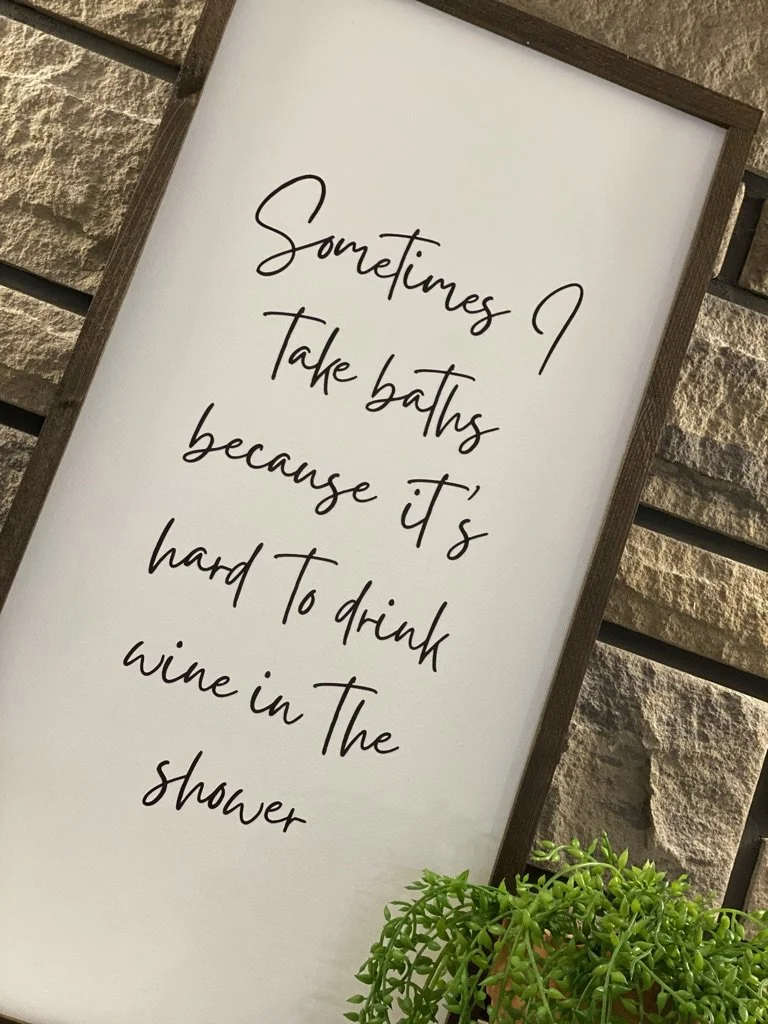 Sometimes I
take baths
because it's
hard to drink
wine in the
shower